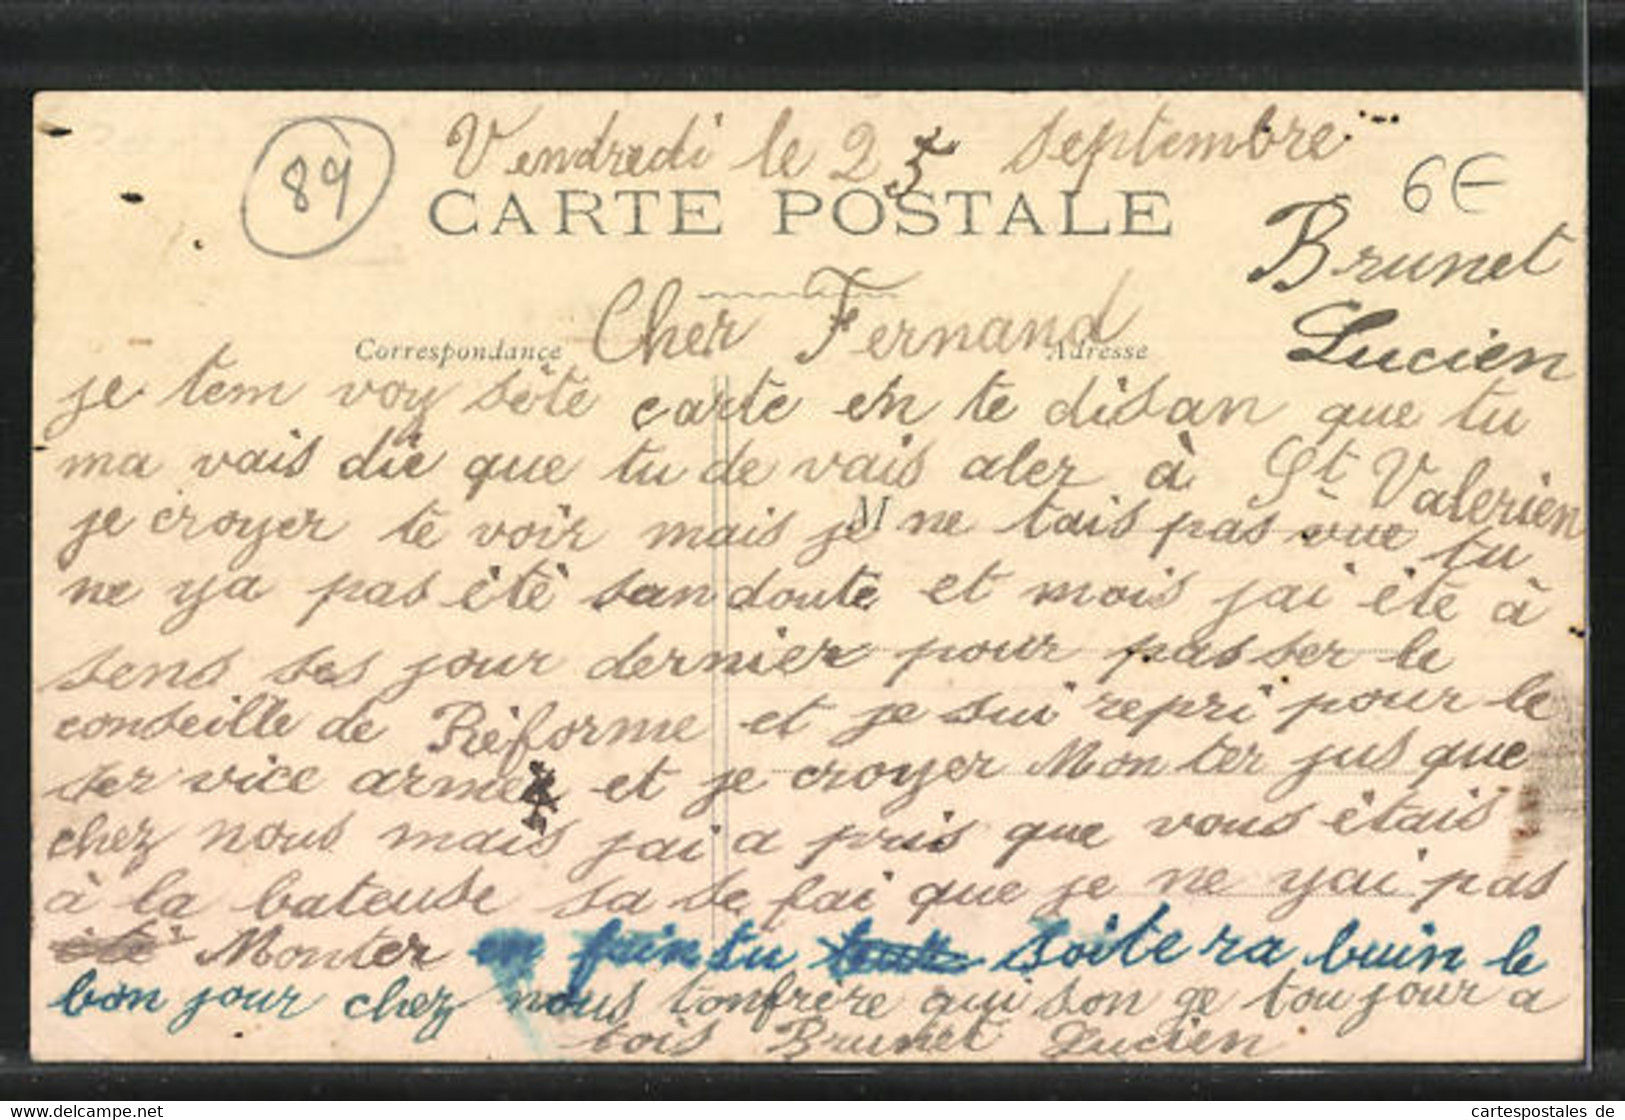 89
Vendredi le 25 septembre
6€
CARTE POSTALE
Brunet
Lucien
Cher Fernand
Correspondance
Adresse
je tem voy sète carte en te disan que tu
ma vais die que tu de vais aler à St Valerien
M
je croyer te voir mais je ne tais pas vue tu
ne ya pas été san doute et mois jai été à
sens ses jour dernier pour passer le
conseille de Réforme et je sui repri pour le
ser vice armé et je croyer Monter jus que
chez nous mais jai a pris que vous étais
à la bateuse sa se fai que je ne yai pas
été Monter en fuin tu soitera buin le
bon jour chez nous tonfrère qui son ge toujour a
tois Brunet Lucien
cartespostales de
www.cartespostales.de